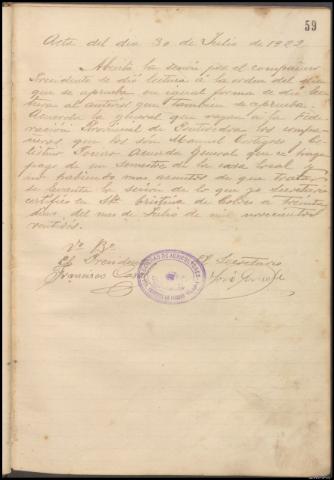 59
Acta del dia 30 de Julio de 1922
Abierta la sesión por el compañero
Presidente se dió lectura a la orden del dia
que se aprueba en igual forma se dió lec
tura al anterior que tambien se aprueba.
Acuerda la general que vayan a la Fede
ración Provincial de Pontevedra los compa
ñeros que los son Manuel
Acuerda General que se haga
pago de un Semestre de la casa Local y
no habiendo mas asuntos de que tratar
se levanta la sesión de lo que yo secretario
certifico en Stª Cristina de Cobres a treinta
dias del mes de Julio de mil novecientos
veintidós.
Vº Bº
El Presidente El Secretario
Francisco
DE AGRICULTORES